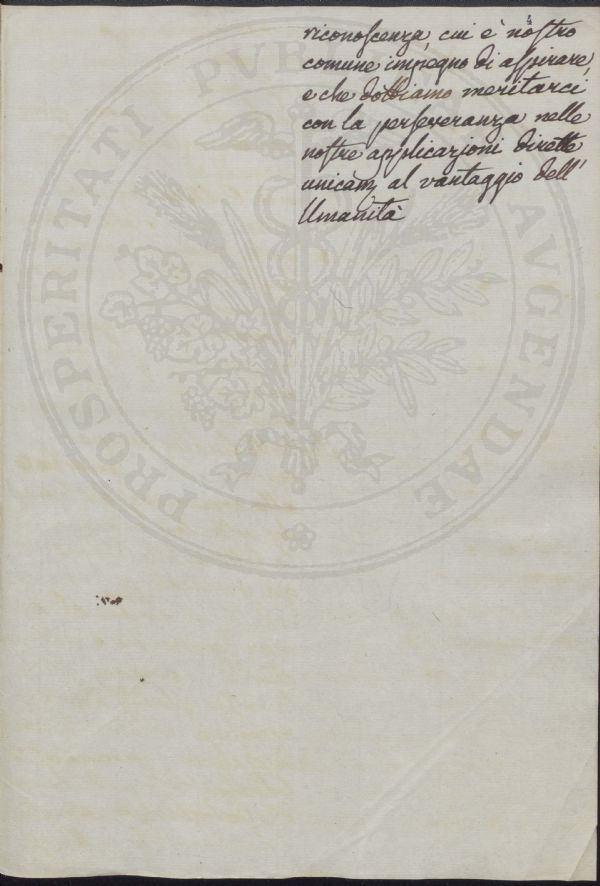 4
riconoscenza, cui è nostro
comune impegno di aspirare,
e che dobbiamo meritarci
con la perseveranza nelle
nostre applicazioni dirette
unicam.^e al vantaggio dell'
Umanità
PROSPERITATI PVBLICAE AVGENDAE